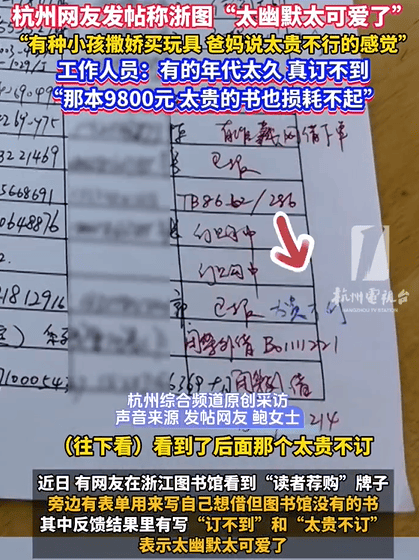 杭州网友发帖称浙图“太幽默太可爱了”
“有种小孩撒娇买玩具 爸妈说太贵不行的感觉”
工作人员：有的年代太久 真订不到
“那本9800元 太贵的书也损耗不起”
3221469
已报
5668691
TB8662/286
0648876
已报
太贵不订
4812916
杭州电视台
HANGZHOU TV STATION
杭州综合频道原创采访
声音来源 发帖网友 鲍女士
214
（往下看）看到了后面那个太贵不订
近日 有网友在浙江图书馆看到“读者荐购”牌子
旁边有表单用来写自己想借但图书馆没有的书
其中反馈结果里有写“订不到”和“太贵不订”
表示太幽默太可爱了